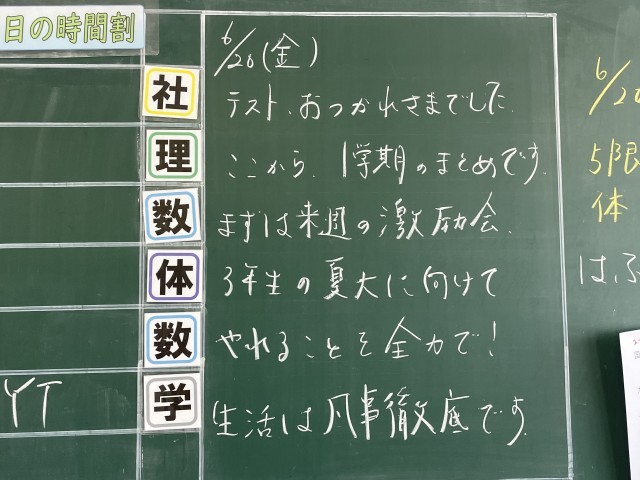 日の時間割
社
理
数
体
数
学
YT
6/26(金)
テスト、おつかれさまでした。
ここから、1学期のまとめです。
まずは来週の激励会。
3年生の夏大に向けて
やれることを全力で!
生活は凡事徹底です。
6/26
5限
体
はふ